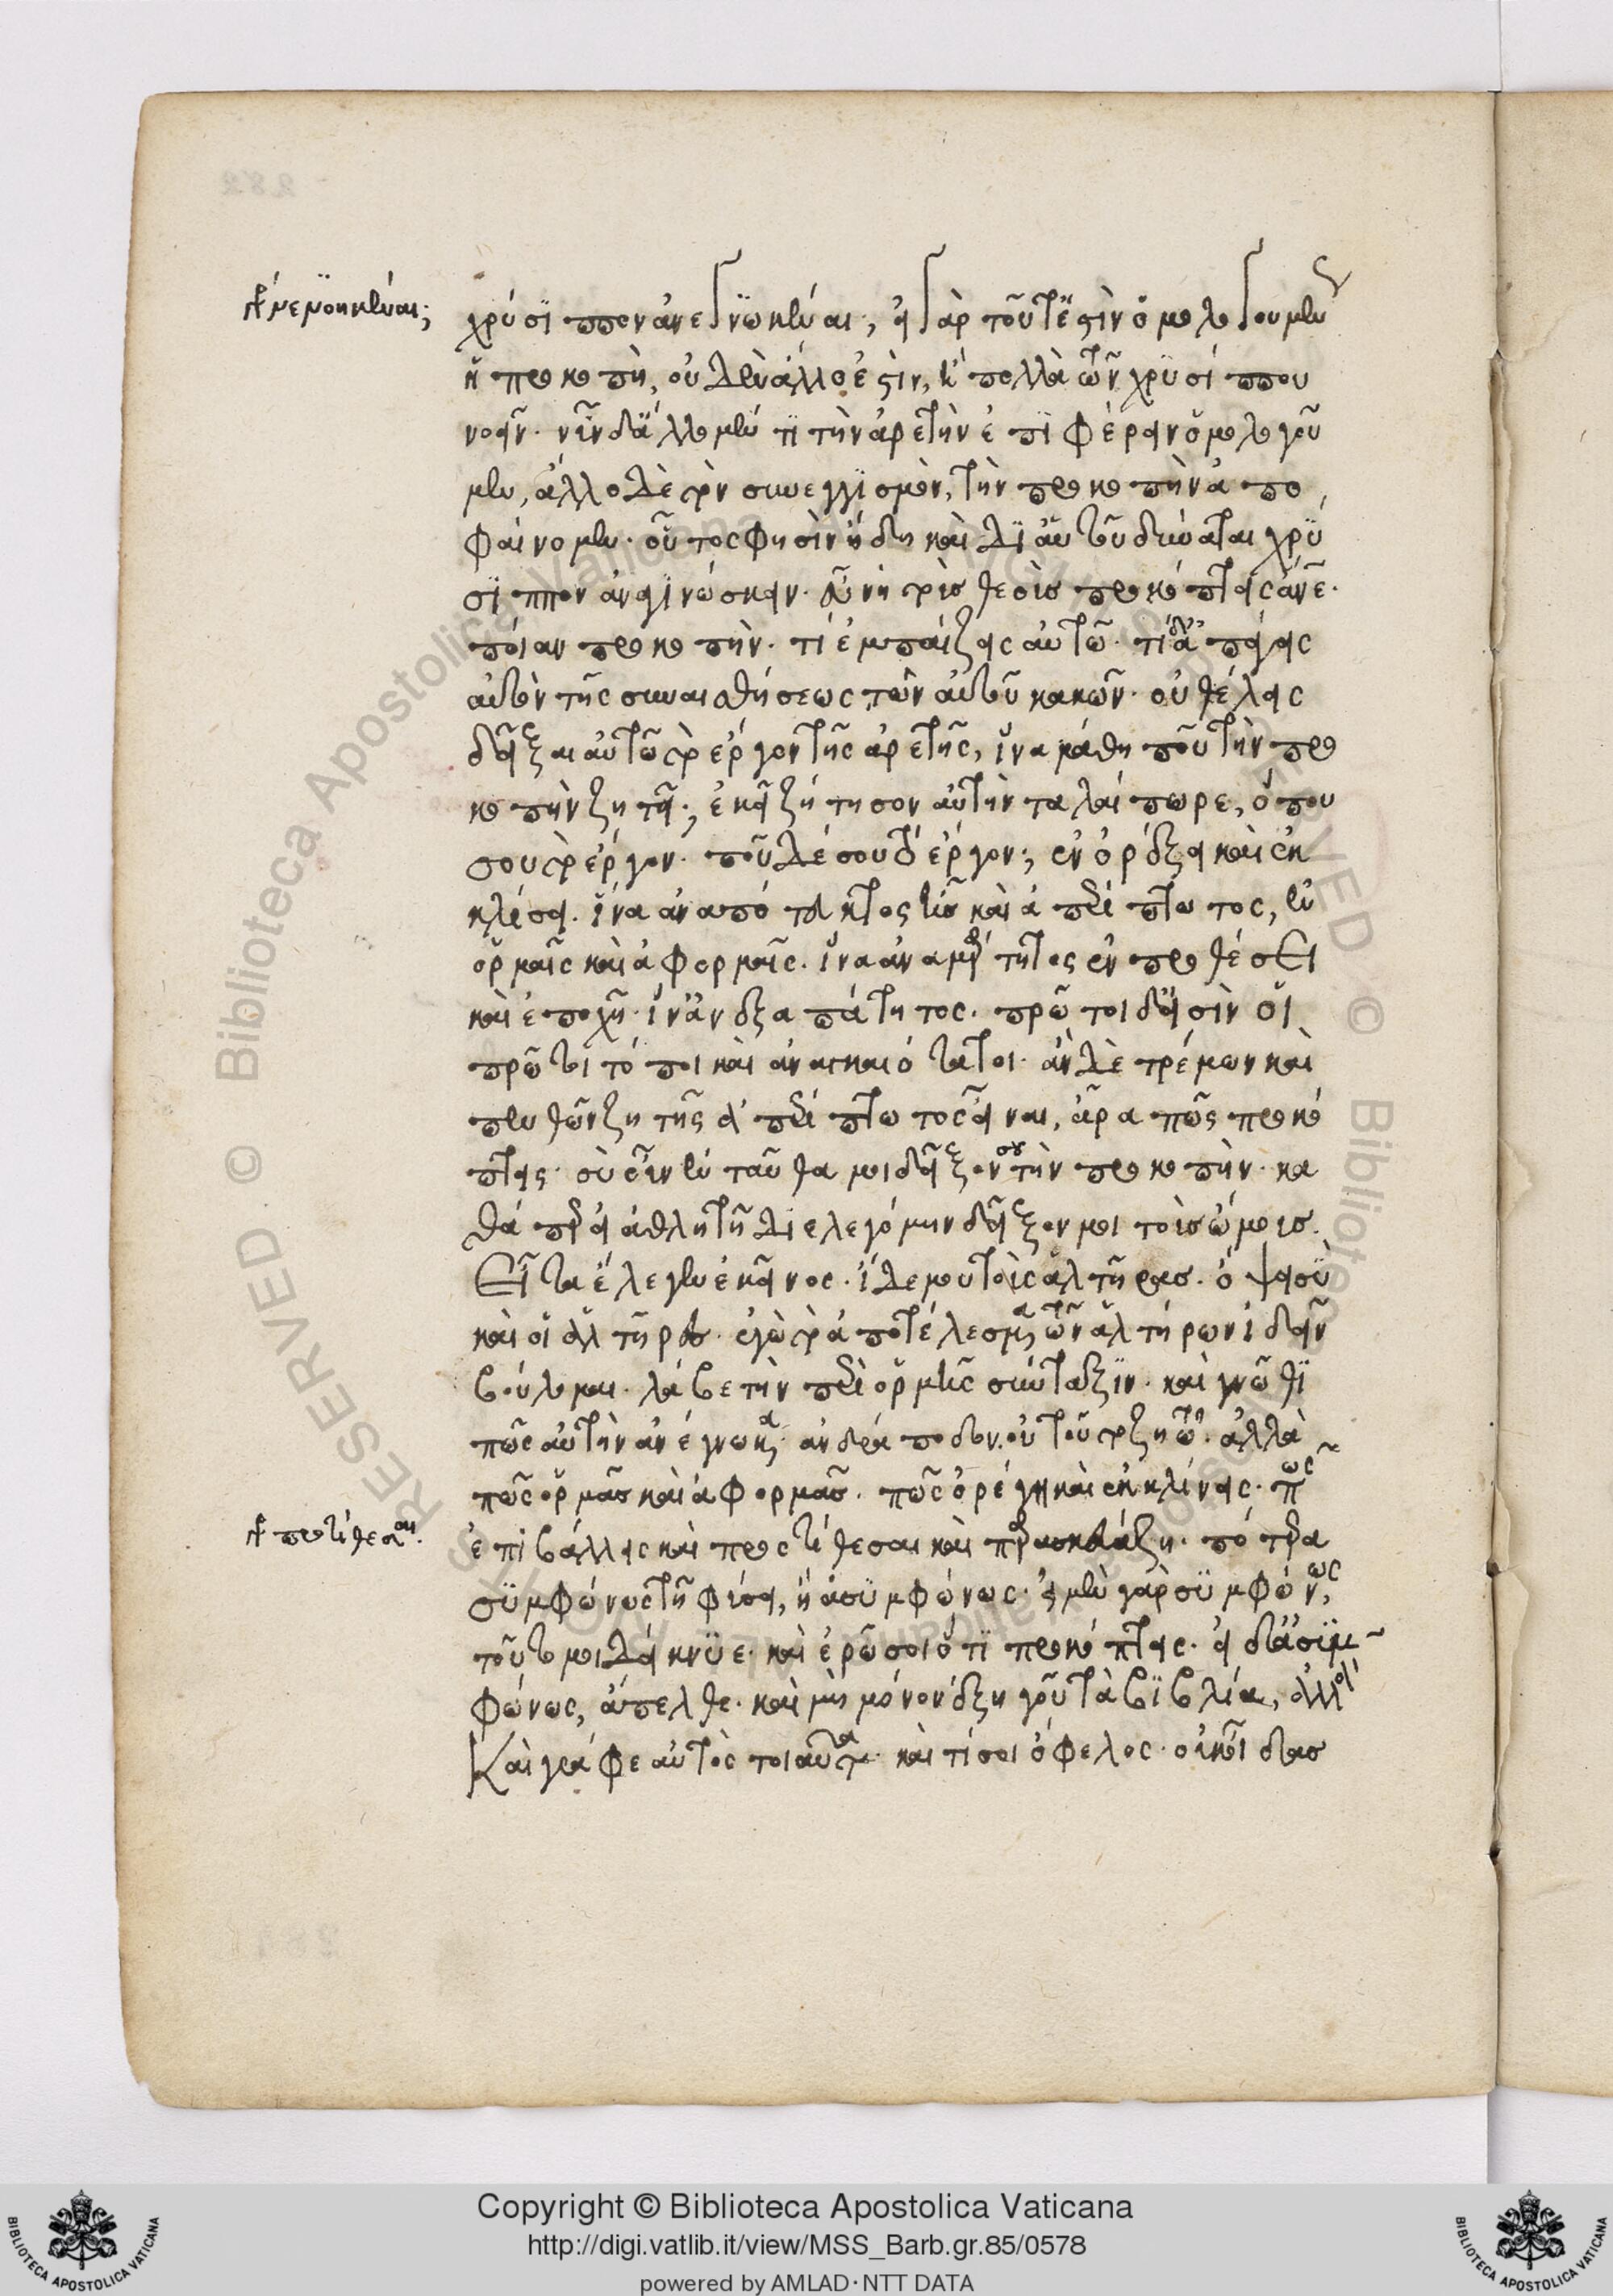 γρ νενοηκέναι;
χρύσιππον ἀνεγνωκέναι; εἰ γὰρ τοῦτ' ἔστιν ὁμολογουμεν
ἡ προκοπὴ, οὐδὲν ἄλλο ἐστὶν, ἢ πολλὰ τῶν χρυσίππου
νοεῖν. νῦν δ' ἄλλο μέν τι τὴν ἀρετὴν ἐπιφέρειν ὁμολογοῦ
μεν, ἄλλο δὲ τὸν συνεγγισμὸν, τὴν προκοπὴν ἀπο
φαίνομεν. οὗτος φησὶν ἤδη καὶ δι' αὑτοῦ δύναται χρύ
σιππον ἀναγινώσκειν. εὖ νὴ τοὺς θεοὺς προκόπτεις ἄνε.
ποίαν προκοπὴν. τί ἐμπαίζεις αὐτῶ. τί δ' ἀπάγεις
αὐτὸν τῆς συναισθήσεως τῶν αὐτοῦ κακῶν. οὐ θέλεις
δεῖξαι αὐτῶ τὸ ἔργον τῆς ἀρετῆς, ἵνα μάθη ποῦ τὴν προ
κοπὴν ζητεῖ; ἐκεῖ ζήτησον αὐτὴν ταλαίπωρε, ὅπου
σου τὸ ἔργον. ποῦ δέ σου τὸ ἔργον; ἐν ὀρέξει καὶ ἐκ
κλίσει. ἵνα ἀναπότευκτος ἦς καὶ ἀπερίπτωτος, ἐν
ὁρμαῖς καὶ ἀφορμαῖς. ἵνα ἀναμάρτητος ἐν προθέσει
καὶ ἐποχῆ. ἵν' ἀνεξαπάτητος. πρῶτοι δ' εἰσὶν οἱ
πρῶτοι τόποι καὶ ἀναγκαιότατοι. ἂν δὲ τρέμων καὶ
πενθῶν ζητῆς ἀπερίπτωτος εἶναι, ἆρα πῶς προκό
πτεις. σὺ οὖν ἐνταῦθά μοι δεῖξόν σου τὴν προκοπὴν. κα
θάπερ εἰ ἀθλητῆ διελεγόμην δεῖξόν μοι τοὺς ὤμους.
Εἶτα ἔλεγεν ἐκεῖνος. ἴδε μου τοὺς ἁλτῆρας. ὄψει σὺ
καὶ οἱ ἁλτῆρες. ἐγὼ τὸ ἀποτέλεσμα τῶν ἁλτήρων ἰδεῖν
βούλομαι. λάβε τὴν περὶ ὁρμῆς σύνταξιν. καὶ γνῶθι
πῶς αὐτὴν ἀνέγνωκα. ἀνδράποδον. οὐ τοῦτο ζητῶ. ἀλλὰ
πῶς ὁρμᾶς καὶ ἀφορμᾶς. πῶς ὀρέγη καὶ ἐκκλίνεις. πῶς
γρ προτίθεσαι.
ἐπιβάλλεις καὶ προστίθεσαι καὶ παρασκευάζη. πότερα
συμφώνως τῆ φύσει, ἢ ἀσυμφώνως. εἰ μὲν γὰρ συμφώνως,
τοῦτό μοι δείκνυε. καὶ ἐρῶ σοι ὅτι προκόπτεις. εἰ δ' ἀσυμ
φώνως, ἄπελθε. καὶ μὴ μόνον ἐξηγοῦ τὰ βιβλία, ἀλλὰ
Καὶ γράφε αὐτὸς τοιαῦτα. καὶ τί σοι ὄφελος. οὐκ οἶδας
Copyright © Biblioteca Apostolica Vaticana
http://digi.vatlib.it/view/MSS_Barb.gr.85/0578
powered by AMLAD · NTT DATA